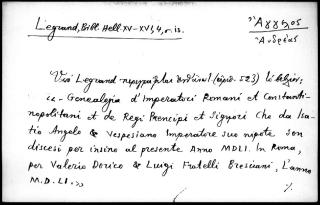 Legrand, Bibl. Hell. XV-XVI, 4, n. 13.
Ἄγγελος
Ἀνδρέας
Legrand περιγράφεται (ἀριθ. 523)
"- Genealogia d'Imperatori Romani et Constanti-
nopolitani et de Regi Prencipi et Signori Che da Isa-
tio Angelo & Vespesiano Imperatore suo nipote son
discesi per insino al presente Anno MDLI. In Roma,
per Valerio Dorico & Luigi Fratelli Bresciani, L'anno
M.D.LI."